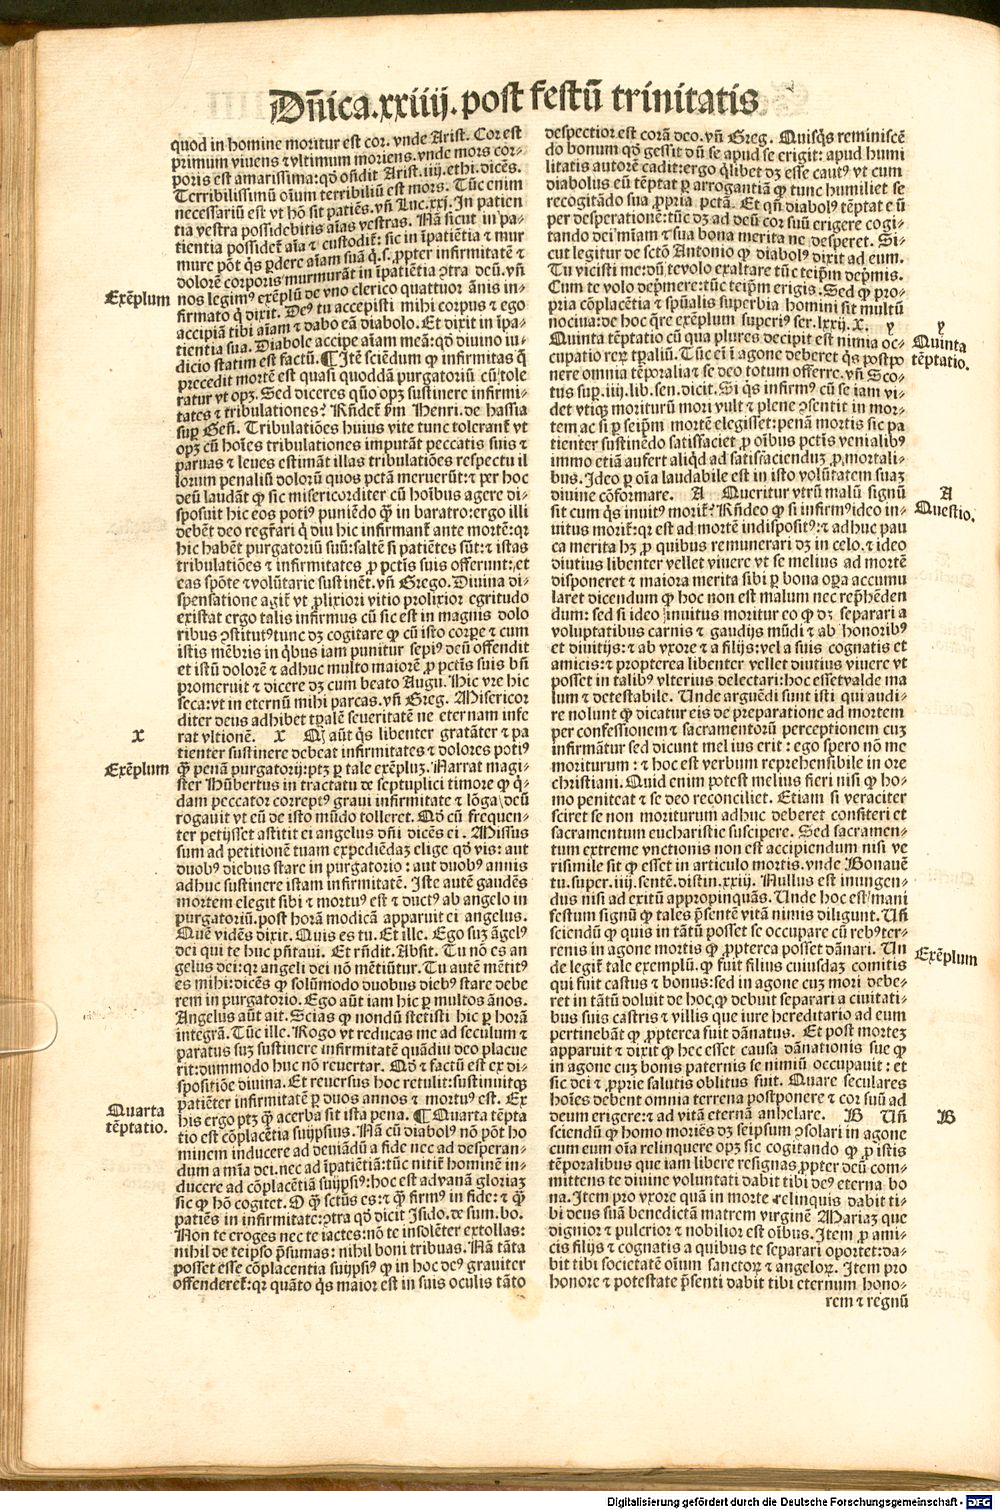 Dn̄ica.xxiiij.post festū trinitatis
quod in homine moritur est cor. vnde Arist. Cor est
primum viuens ⁊ vltimum moriens. vnde mors cor-
poris est amarissima: qđ oñdit Arist. iij. ethi. dicēs.
Terribilissimū oīum terribiliū est mors. Tūc enim
necessariū est vt hō sit patiēs. vñ Luc. xxj. In patien
tia vestra possidebitis aīas vestras. Nā sicut in pa-
tientia possideꝉ aīa ⁊ custodiꝉ: sic in īpatiētia ⁊ mur
mure pōt q̇s ꝑdere aīam suā q̇. s. ꝓpter infirmitatē ⁊
dolorē corporis murmurāt in īpatiētia ꝯtra deū. vñ
Exēplum
nos legimꝰ exēplū de vno clerico quattuor ānis in-
firmato q̇ dixit. Deꝰ tu accepisti mihi corpus ⁊ ego
accipiā tibi aīam ⁊ dabo eā diabolo. Et dixit in īpa-
tientia sua. Diabole accipe aīam meā: qđ diuino iu-
dicio statim est factū. ¶ Itē sciēdum ꝙ infirmitas q̄
precedit mortē est quasi quoddā purgatoriū cū tole
ratur vt opꝫ. Sed diceres quō opꝫ sustinere infirmi-
tates ⁊ tribulationes? Rn̄deꝉ ẜm Henri. de hassia
suꝑ Gen̄. Tribulatiōes huius vite tunc toleranꝉ vt
opꝫ cū hoīes tribulationes imputāt peccatis suis ⁊
paruas ⁊ leues estimāt illas tribulatiōes respectu il
lorum penaliū dolorū quos pctā meruerūt: ⁊ per hoc
deū laudāt ꝙ sic misericorditer cū hoībus agere di-
sposuit hic eos potiꝰ puniēdo q̄ in baratro: ergo illi
debēt deo regr̄ari q̇ diu hic infirmanꝉ ante mortē: qꝛ
hic habēt purgatoriū suū: saltē si patiētes sūt: ⁊ istas
tribulatiōes ⁊ infirmitates ꝓ pctīs suis offerunt: et
eas spōte ⁊ volūtarie sustinēt. vñ Grego. Diuina di-
spensatione agiꝉ vt ꝓlixiori vitio prolixior egritudo
existat ergo talis infirmus cū sic est in magnis dolo
ribus ꝯstitutꝰ tunc dꝫ cogitare ꝙ cū isto corpe ⁊ cum
istis mēbris in q̇bus iam punitur sepiꝰ deū offendit
et istū dolorē ⁊ adhuc multo maiorē ꝓ pctīs suis bn̄
promeruit ⁊ dicere dꝫ cum beato Augu. Hic vre hic
seca: vt in eternū mihi parcas. vñ Greg. Misericor
diter deus adhibet tꝑalē seueritatē ne eternam infe
x
rat vltionē. x Q̇ aūt q̇s libenter gratāter ⁊ pa
tienter sustinere debeat infirmitates ⁊ dolores potiꝰ
Exēplum
q̄ penā purgatorij: ptꝫ ꝑ tale exēpluꝫ. Narrat magi-
ster Hūbertus in tractatu de septuplici timore ꝙ q̇-
dam peccator correptꝰ graui infirmitate ⁊ lōga deū
rogauit vt eū de isto mūdo tolleret. Qđ cū frequen-
ter petijsset astitit ei angelus dn̄i dicēs ei. Missus
sum ad petitionē tuam expediēdaꝫ elige qđ vis: aut
duobꝰ diebus stare in purgatorio: aut duobꝰ annis
adhuc sustinere istam infirmitatē. Iste autē gaudēs
mortem elegit sibi ⁊ mortuꝰ est ⁊ ductꝰ ab angelo in
purgatoriū. post horā modicā apparuit ei angelus.
Quē vidēs dixit. Quis es tu. Et ille. Ego suꝫ āgelꝰ
dei qui te huc pn̄taui. Et rn̄dit. Absit. Tu nō es an
gelus dei: qꝛ angeli dei nō mētiūtur. Tu autē mētitꝰ
es mihi: dicēs ꝙ solūmodo duobus diebꝰ stare debe
rem in purgatorio. Ego aūt iam hic ꝑ multos ānos.
Angelus aūt ait. Scias ꝙ nondū stetisti hic ꝑ horā
integrā. Tūc ille. Rogo vt reducas me ad seculum ⁊
paratus suꝫ sustinere infirmitatē quādiu deo placue
rit: dummodo huc nō reuertar. Qđ ⁊ factū est ex di-
spositiōe diuina. Et reuersus hoc retulit: sustinuitqꝫ
patiēter infirmitatē ꝑ duos annos ⁊ mortuꝰ est. Ex
Quarta
tēptatio.
his ergo ptꝫ q̄ acerba sit ista pena. ¶ Quarta tēpta
tio est cōplacētia suijpsius. Nā cū diabolꝰ nō pōt ho
minem inducere ad deuiādū a fide nec ad desperan-
dum a mīa dei. nec ad īpatiētiā: tūc nitiꝉ hominē in-
ducere ad cōplacētiā suijpsiꝰ: hoc est ad vanā gloriaꝫ
sic ꝙ hō cogitet. O q̄ sctūs es: ⁊ q̄ firmꝰ in fide: ⁊ q̄
patiēs in infirmitate: ꝯtra qđ dicit Isido. de sum. bo.
Non te eroges nec te iactes: nō te insolēter extollas:
nihil de teipso p̄sumas: nihil boni tribuas. Nā tāta
posset esse cōplacentia suijpsiꝰ ꝙ in hoc deꝰ grauiter
offendereꝉ: qꝛ quāto q̇s maior est in suis oculis tāto
despectior est corā deo. vñ Greg. Quisq̇s reminiscē
do bonum qđ gessit dū se apud se erigit: apud humi
litatis autorē cadit: ergo q̇libet dꝫ esse cautꝰ vt cum
diabolus eū tēptat ꝑ arrogantiā ꝙ tunc humiliet se
recogitādo sua ꝓpria pctā. Et qn̄ diabolꝰ tēptat eū
per desperationē: tūc dꝫ ad deū cor suū erigere cogi-
tando dei mīam ⁊ sua bona merita ne desperet. Si-
cut legitur de sctō Antonio ꝙ diabolꝰ dixit ad eum.
Tu vicisti me: dū te volo exaltare tūc teipm̄ dep̄mis.
Cum te volo dep̄mere: tūc teipm̄ erigis. Sed ꝙ pro-
pria cōplacētia ⁊ spūalis superbia homini sit multū
nociua: de hoc q̄re exēplum superiꝰ ser. lxxij. X. y
y
Quinta
tēptatio.
Quinta tēptatio cū qua plures decipit est nimia oc-
cupatio reꝝ tꝑaliū. Tūc ei ī agone deberet q̇s postpo
nere omnia tēporalia ⁊ se deo totum offerre. vñ Sco-
tus suꝑ. iiij. lib. sen. dicit. Si q̇s infirmꝰ cū se iam vi-
det vtiqꝫ moriturū mori vult ⁊ plene ꝯsentit in mor-
tem ac si ꝑ seipm̄ mortē elegisset: penā mortis sic pa
tienter sustinēdo satisfaciet ꝓ oībus pctīs venialibꝰ
immo etiā aufert aliqđ ad satisfaciendū ꝓ mortali-
bus. Ideo ꝑ oīa laudabile est in isto volūtatem suaꝫ
A
Questio.
diuine cōformare. A Queritur vtrū malū signū
sit cum q̇s inuitꝰ moriꝉ? Rn̄deo ꝙ si infirmꝰ ideo in-
uitus moriꝉ: qꝛ est ad mortē indispositꝰ: ⁊ adhuc pau
ca merita hꝫ ꝓ quibus remunerari dꝫ in celo. ⁊ ideo
diutius libenter vellet viuere vt se melius ad mortē
disponeret ⁊ maiora merita sibi ꝑ bona oꝑa accumu
laret dicendum ꝙ hoc non est malum nec rep̄hēden
dum: sed si ideo inuitus moritur eo ꝙ dꝫ separari a
voluptatibus carnis ⁊ gaudijs mūdi ⁊ ab honoribꝰ
et diuitijs: ⁊ ab vxore ⁊ a filijs: vel a suis cognatis et
amicis: ⁊ propterea libenter vellet diutius viuere vt
posset in talibꝰ vlterius delectari: hoc esset valde ma
lum ⁊ detestabile. Unde arguēdi sunt isti qui audi-
re nolunt ꝙ dicatur eis de preparatione ad mortem
per confessionem ⁊ sacramentorū perceptionem cuꝫ
infirmātur sed dicunt melius erit: ego spero nō me
moriturum: ⁊ hoc est verbum reprehensibile in ore
christiani. Quid enim potest melius fieri nisi ꝙ ho-
mo peniteat ⁊ se deo reconciliet. Etiam si veraciter
sciret se non moriturum adhuc deberet confiteri et
sacramentum eucharistie suscipere. Sed sacramen-
tum extreme vnctionis non est accipiendum nisi ve
risimile sit ꝙ esset in articulo mortis. vnde Bonauē
tu. super. iiij. sentē. distin. xxiij. Nullus est inungen-
dus nisi ad exitū appropinquās. Unde hoc est mani
festum signū ꝙ tales p̄sentē vitā nimis diligunt. Uñ
sciendū ꝙ quis in tātū posset se occupare cū rebꝰ ter-
renis in agone mortis ꝙ ꝓpterea posset dānari. Un
Exēplum
de legiꝉ tale exemplū. ꝙ fuit filius cuiusdaꝫ comitis
qui fuit castus ⁊ bonus: sed in agone cuꝫ mori debe-
ret in tātū doluit de hoc ꝙ debuit separari a ciuitati-
bus suis castris ⁊ villis que iure hereditario ad eum
pertinebāt ꝙ ꝓpterea fuit dānatus. Et post morteꝫ
apparuit ⁊ dixit ꝙ hec esset causa dānationis sue ꝙ
in agone cuꝫ bonis paternis se nimiū occupauit: et
sic dei ⁊ ꝓprie salutis oblitus fuit. Quare seculares
hoīes debent omnia terrena postponere ⁊ cor suū ad
deum erigere: ⁊ ad vitā eternā anhelare. B Uñ
B
sciendū ꝙ homo moriēs dꝫ seipsum ꝯsolari in agone
cum eum oīa relinquere opꝫ sic cogitando ꝙ ꝓ istis
tēporalibus que iam libere resignas ꝓpter deū com-
mittens te diuine voluntati dabit tibi deꝰ eterna bo
na. Item pro vxore quā in morte relinquis dabit ti-
bi deus suā benedictā matrem virginē Mariaꝫ que
dignior ⁊ pulcrior ⁊ nobilior est oībus. Item ꝓ ami-
cis filijs ⁊ cognatis a quibus te separari oportet: da-
bit tibi societatē oīum sanctoꝝ ⁊ angeloꝝ. Item pro
honore ⁊ potestate p̄senti dabit tibi eternum hono-
rem ⁊ regnū
Digitalisierung gefördert durch die Deutsche Forschungsgemeinschaft - DFG